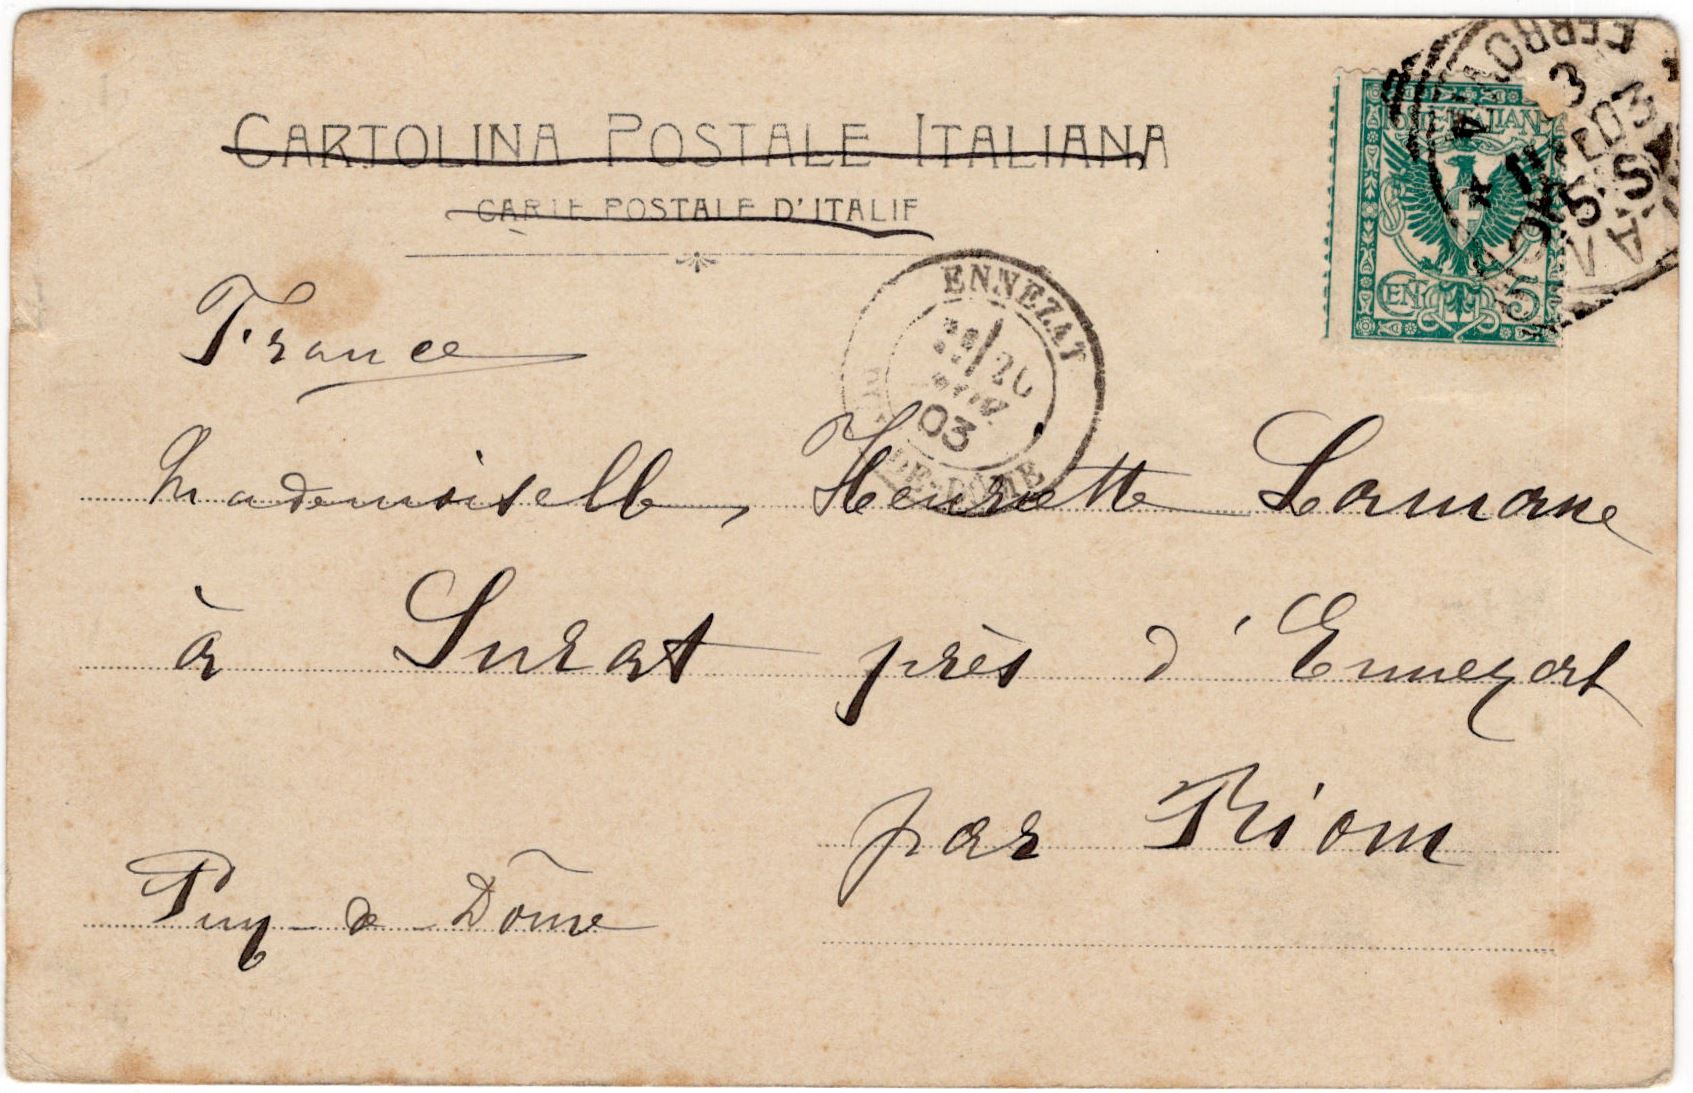 CARTOLINA POSTALE ITALIANA
CARTE POSTALE D'ITALIE
POSTE ITALIANE
CEN 5
ENNEZAT
20
03
PUY-DE-DOME
France
Mademoiselle, Henriette Lamane
à Surat près d'Ennezat
par Riom
Puy-de-Dôme